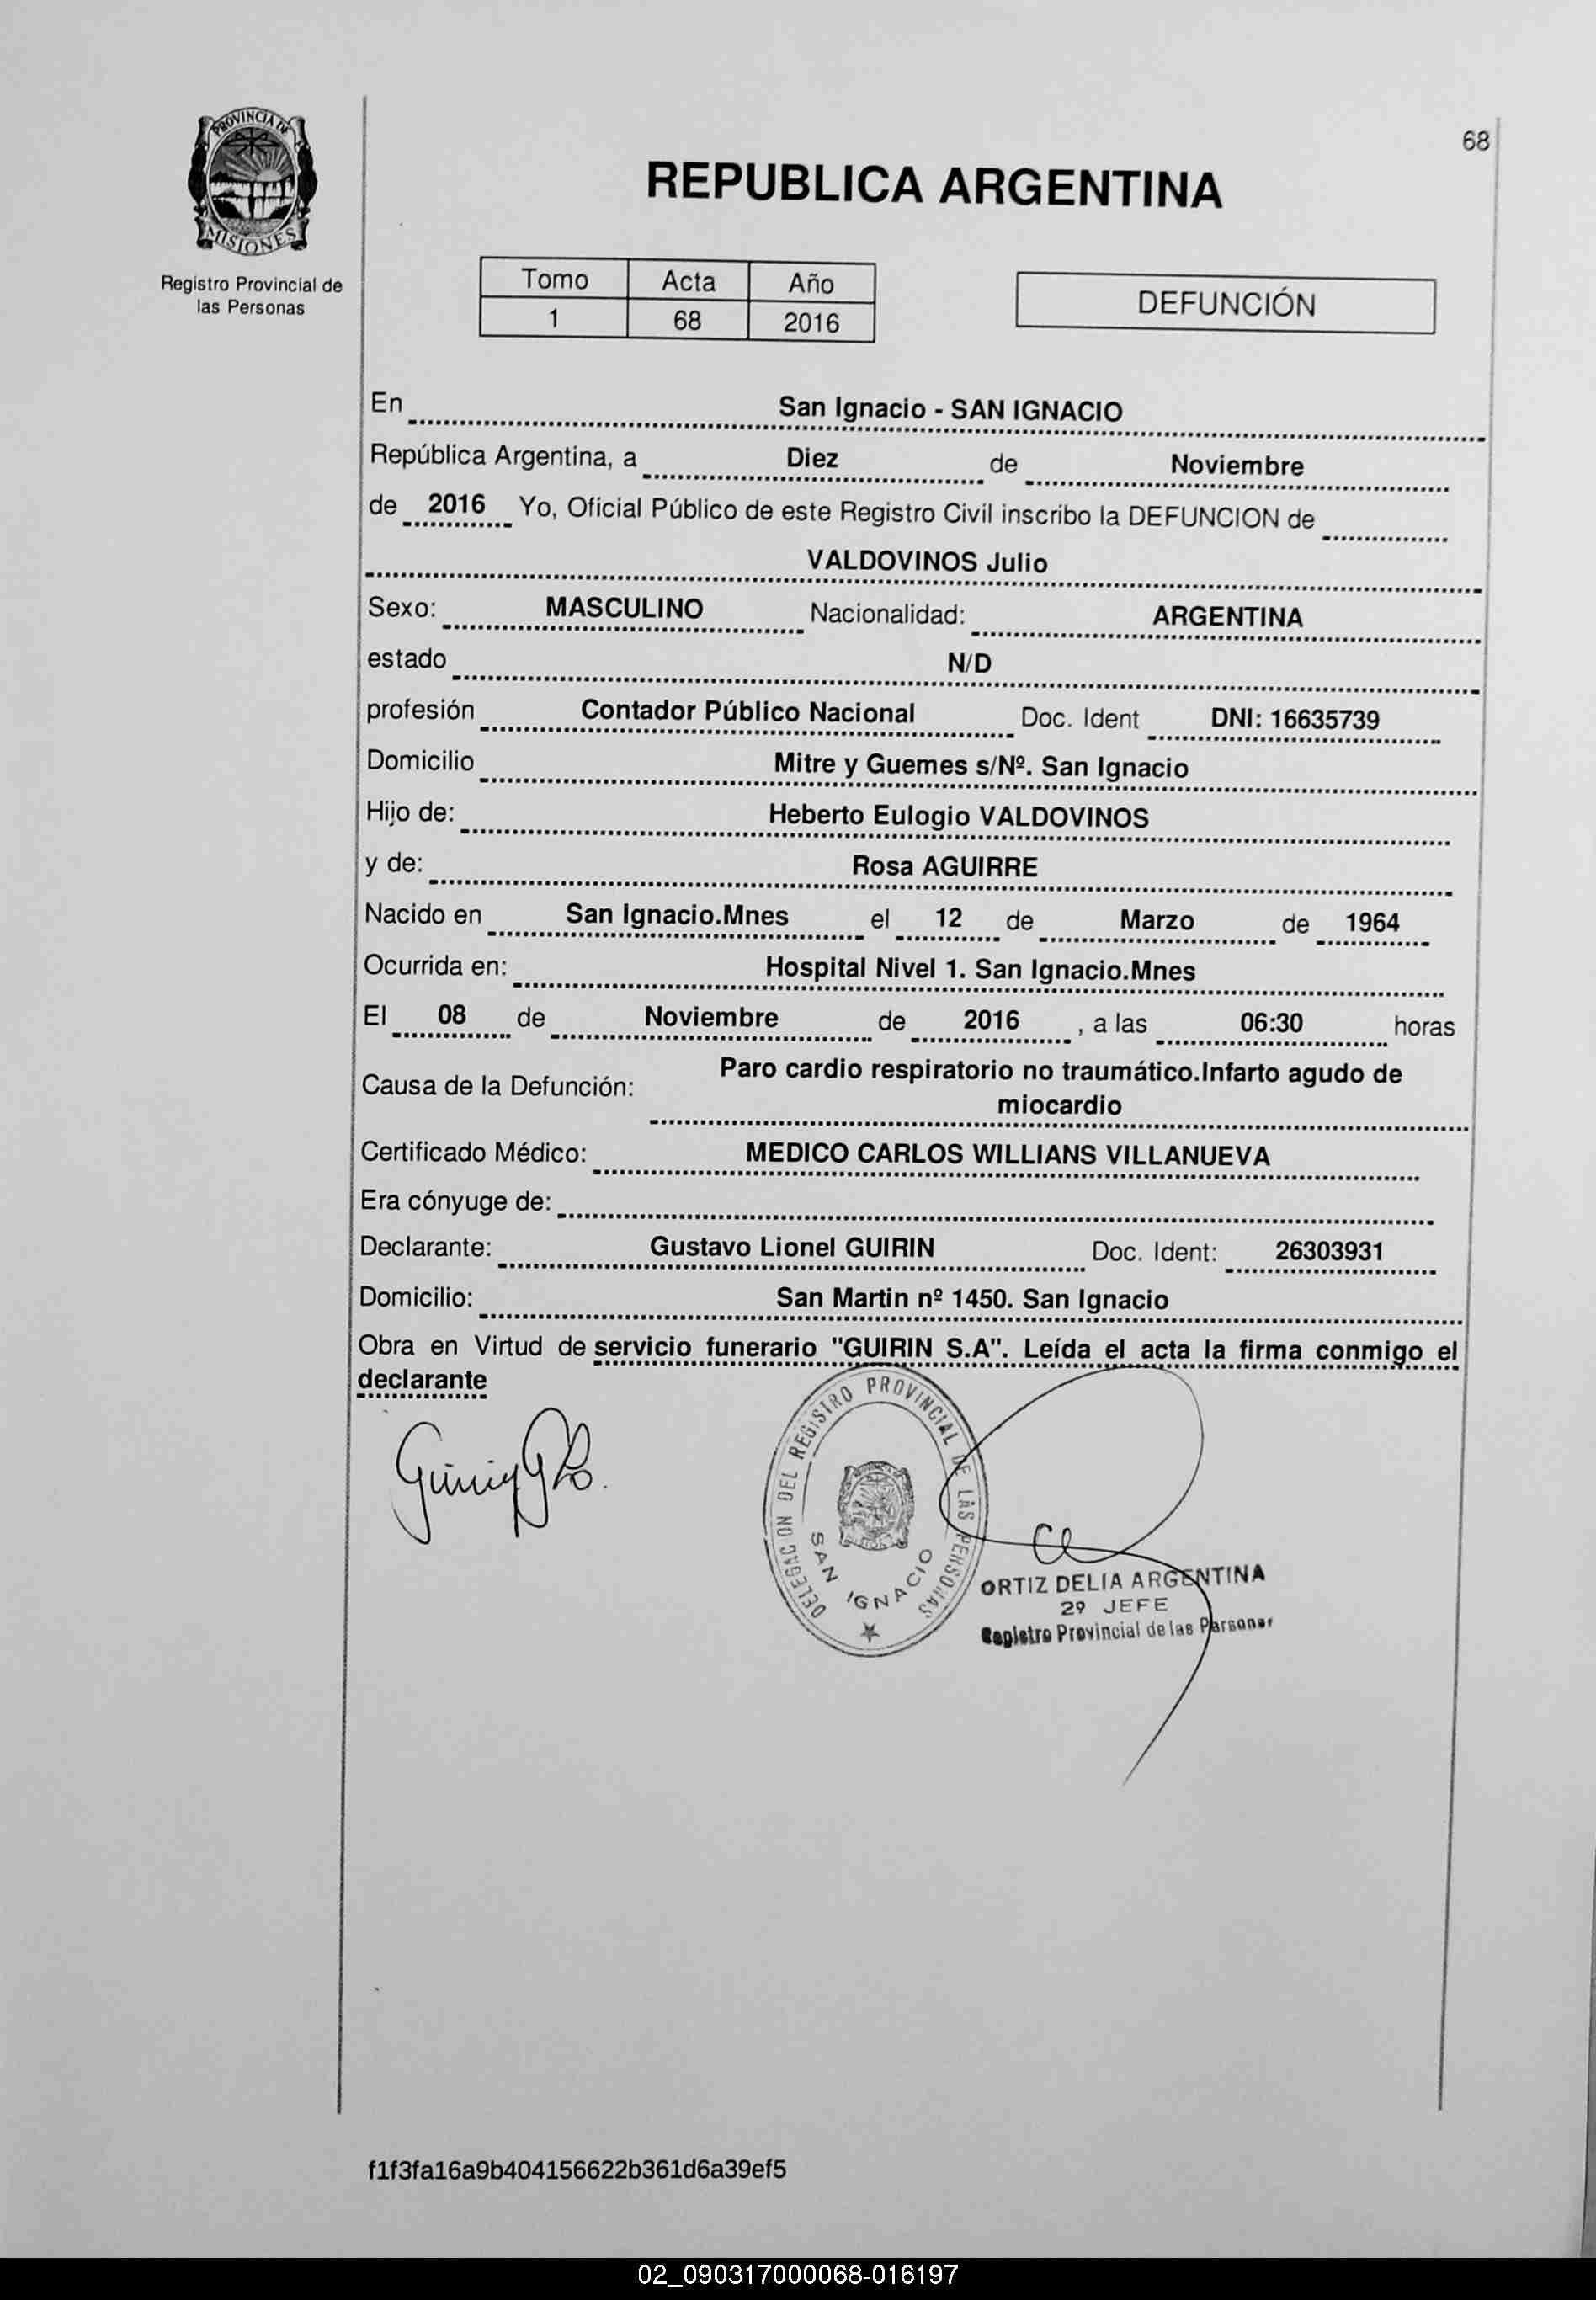 PROVINCIA DE
MISIONES
Registro Provincial de
las Personas
68
REPUBLICA ARGENTINA
Tomo Acta Año
1 68 2016
DEFUNCIÓN
En San Ignacio - SAN IGNACIO
República Argentina, a Diez de Noviembre
de 2016 Yo, Oficial Público de este Registro Civil inscribo la DEFUNCION de
VALDOVINOS Julio
Sexo: MASCULINO Nacionalidad: ARGENTINA
estado N/D
profesión Contador Público Nacional Doc. Ident DNI: 16635739
Domicilio Mitre y Guemes s/Nº. San Ignacio
Hijo de: Heberto Eulogio VALDOVINOS
y de: Rosa AGUIRRE
Nacido en San Ignacio.Mnes el 12 de Marzo de 1964
Ocurrida en: Hospital Nivel 1. San Ignacio.Mnes
El 08 de Noviembre de 2016 , a las 06:30 horas
Causa de la Defunción: Paro cardio respiratorio no traumático.Infarto agudo de
miocardio
Certificado Médico: MEDICO CARLOS WILLIANS VILLANUEVA
Era cónyuge de:
Declarante: Gustavo Lionel GUIRIN Doc. Ident: 26303931
Domicilio: San Martin nº 1450. San Ignacio
Obra en Virtud de servicio funerario "GUIRIN S.A". Leída el acta la firma conmigo el
declarante
DELEGACION DEL REGISTRO PROVINCIAL DE LAS PERSONAS
SAN IGNACIO
ORTIZ DELIA ARGENTINA
2º JEFE
Registro Provincial de las Personas
f1f3fa16a9b404156622b361d6a39ef5
02_090317000068-016197